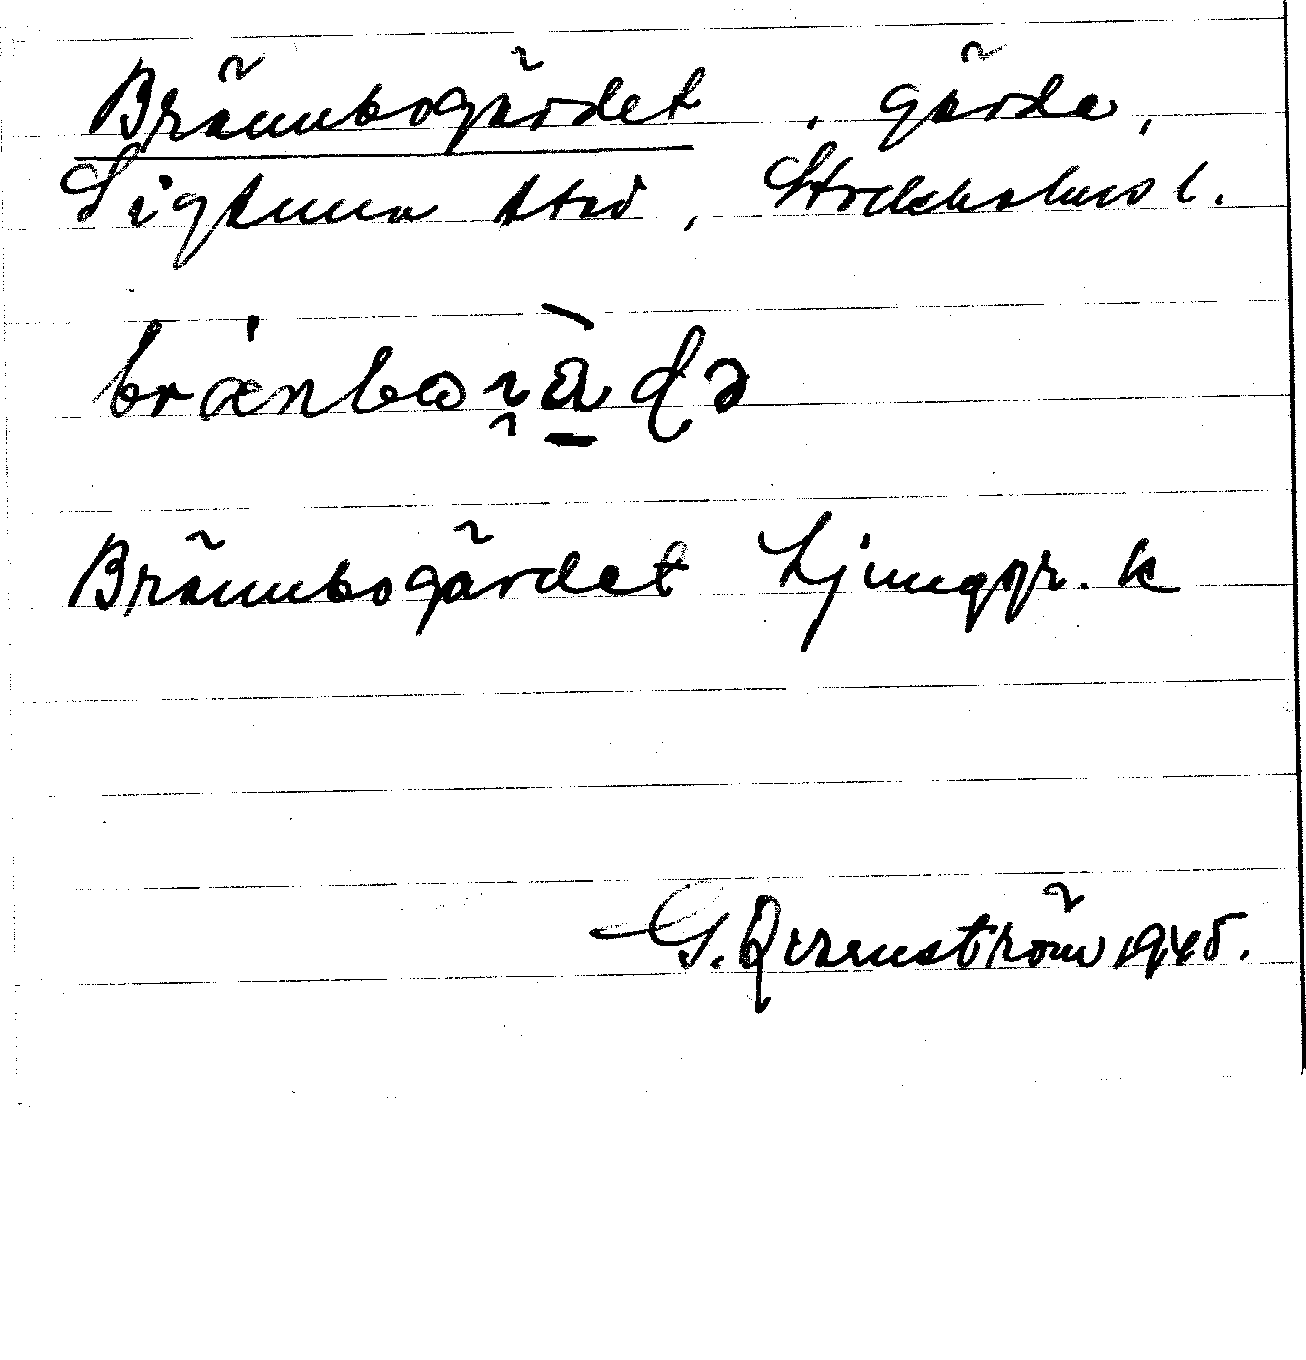 Brännbogärdet, gärde,
Sigtuna stad, Stockholms l.
Brännbogärdet Ljunggr. k
G. Qvarnström 1945.